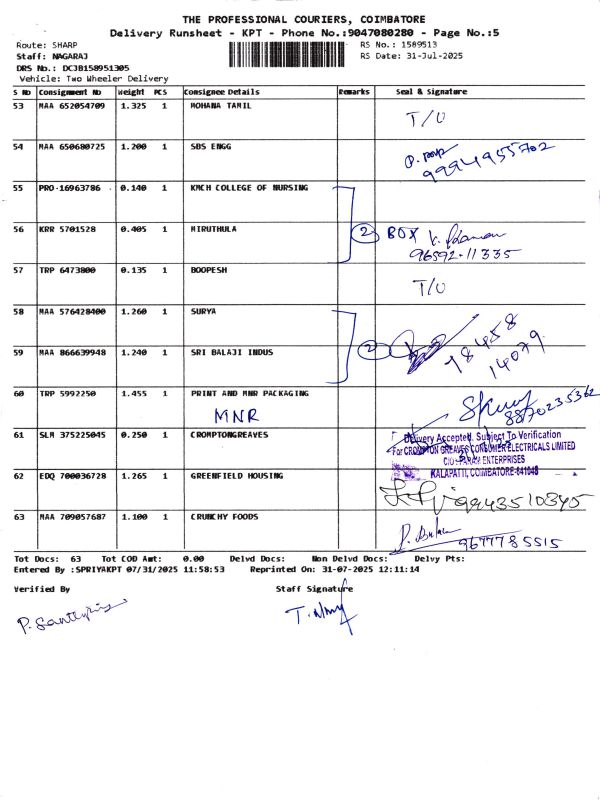 THE PROFESSIONAL COURIERS, COIMBATORE
Delivery Runsheet - KPT - Phone No.:9047080280 - Page No.:5
Route: SHARP RS No.: 1589513
Staff: NAGARAJ RS Date: 31-Jul-2025
DRS No.: DCJB158951305
Vehicle: Two Wheeler Delivery
S No Consignment No Weight PCS Consignee Details Remarks Seal & Signature
53 MAA 652054709 1.325 1 MOHANA TAMIL T/U
54 MAA 650680725 1.200 1 SBS ENGG
9994955702
55 PRO-16963786 0.140 1 KMCH COLLEGE OF NURSING
56 KRR 5701528 0.405 1 MIRUTHULA 2 BOX
96592-11335
57 TRP 6473800 0.135 1 BOOPESH T/U
58 MAA 576428400 1.260 1 SURYA
78458
59 MAA 866639948 1.240 1 SRI BALAJI INDUS 2 14079
60 TRP 5992250 1.455 1 PRINT AND MNR PACKAGING
MNR 8870235362
61 SLM 375225045 0.250 1 CROMPTONGREAVES
Delivery Accepted. Subject To Verification
For CROMPTON GREAVES CONSUMER ELECTRICALS LIMITED
C/O PARAM ENTERPRISES
KALAPATTI, COIMBATORE-641048
62 EDQ 700036728 1.265 1 GREENFIELD HOUSING
9943510345
63 MAA 709057687 1.100 1 CRUNCHY FOODS
9677785515
Tot Docs: 63 Tot COD Amt: 0.00 Delvd Docs: Non Delvd Docs: Delvy Pts:
Entered By :SPRIYAKPT 07/31/2025 11:58:53 Reprinted On: 31-07-2025 12:11:14
Verified By Staff Signature